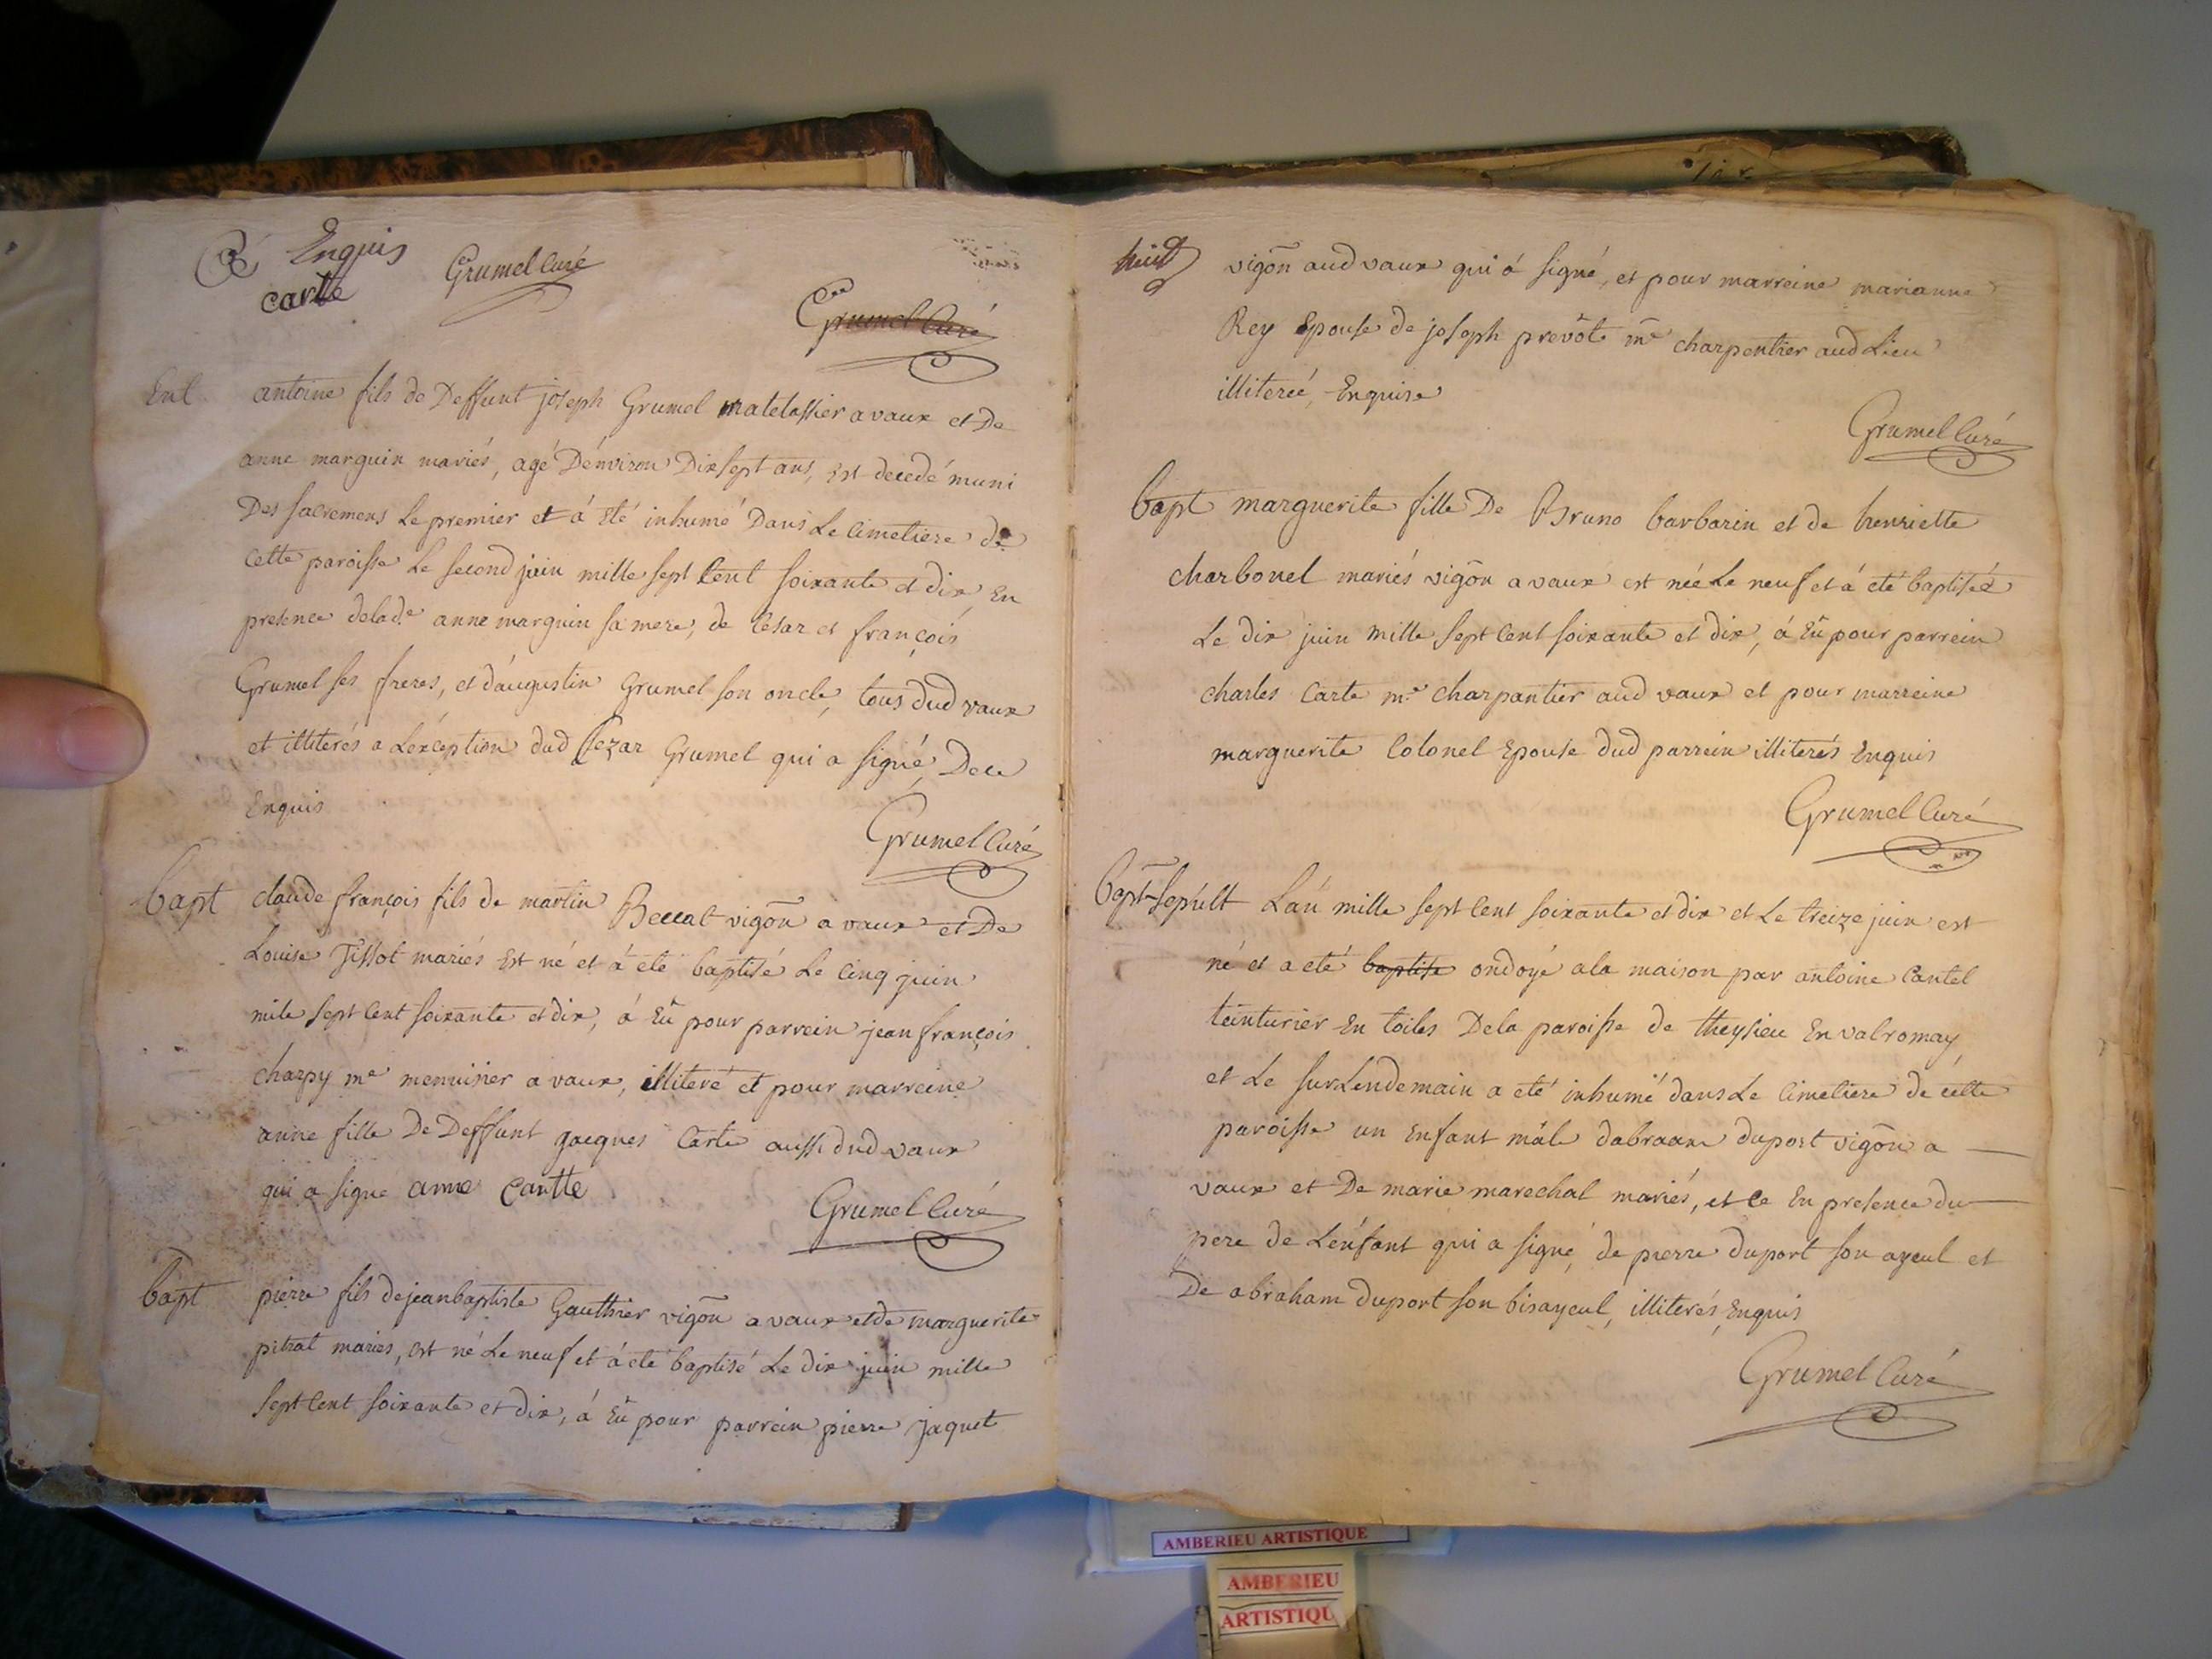 Enquis
carte Grumel Curé
Grumel Curé
Ent. antoine fils de Deffunt joseph Grumel matelassier a vaux et De
anne marguin mariés, agé D'environ Dix sept ans, est decedé muni
Des sacremens Le premier et á Eté inhumé Dans Le Cimetiere de
Cette paroisse Le second juin mille sept Cent soixante et dix, En
presence delade anne marguin sa mere, de Cesar et françois
Grumel ses freres, et d'augustin Grumel son oncle, tous dud vaux
et illiterés a L'exception dud Cezar Grumel qui a signé, De ce
Enquis
Grumel Curé
bapt claude françois fils de martin Beccat vigōn a vaux et De
Louise Tissot mariés Est né et á eté baptisé Le Cinq juin
mile sept Cent soixante et dix, á Eû pour parrein jean françois
charpy me menuisier a vaux, illiteré et pour marreine
anne fille De Deffunt jacques Carte aussi dud vaux
qui a signe anne Cartte
Grumel Curé
bapt pierre fils de jean baptiste Gauthier vigōn a vaux et de marguerite
pitrat mariés, est né Le neuf et á eté baptisé Le dix juin mille
sept Cent soixante et dix, á Eû pour parrein pierre jaquet
huit vigōn aud vaux qui á signé, et pour marreine marianne
Rey Epouse de joseph prevôt me charpentier aud Lieu
illitereé, Enquise
Grumel Curé
bapt marguerite fille De Bruno barbarin et de henriette
charbonel mariés vigōn a vaux est neé Le neuf et á eté baptiseé
Le dix juin mille sept Cent soixante et dix, á Eû pour parrein
charles Carte me charpantier aud vaux et pour marreine
marguerite Colonel Epouse dud parrein illiterés Enquis
Grumel Curé
bapt-sepult L'an mille sept Cent soixante et dix et Le treize juin est
né et a eté baptise ondoyé a la maison par antoine Cantel
teinturier En toiles De la paroisse de theysieu En valromay
et Le surLendemain a eté inhumé dans Le Cimetiere de cette
paroisse un Enfant mâle dabraam duport vigōn a
vaux et De marie marechal mariés, et ce En presence du
pere de L'enfant qui a signé, de pierre duport son ayeul et
De abraham duport son bisayeul, illiterés, Enquis
Grumel Curé
AMBERIEU ARTISTIQUE
AMBERIEU
ARTISTIQU